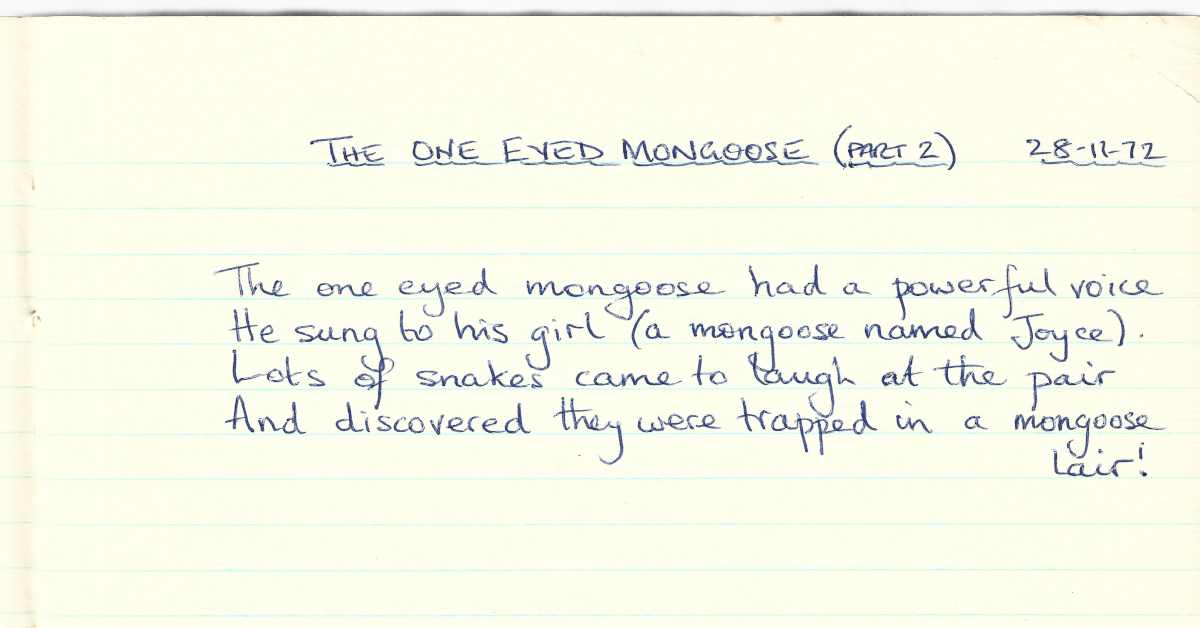 THE ONE EYED MONGOOSE (PART 2) 28-11-72
The one eyed mongoose had a powerful voice
He sung to his girl (a mongoose named Joyce).
Lots of snakes came to laugh at the pair
And discovered they were trapped in a mongoose
lair!